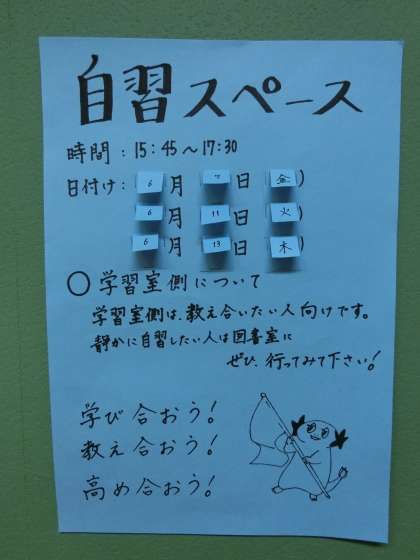 自習スペース
時間：15:45～17:30
日付け：6月7日(金)
6月11日(火)
6月13日(木)
○学習室側について
学習室側は、教え合いたい人向けです。
静かに自習したい人は図書室に
ぜひ、行ってみて下さい！
学び合おう！
教え合おう！
高め合おう！